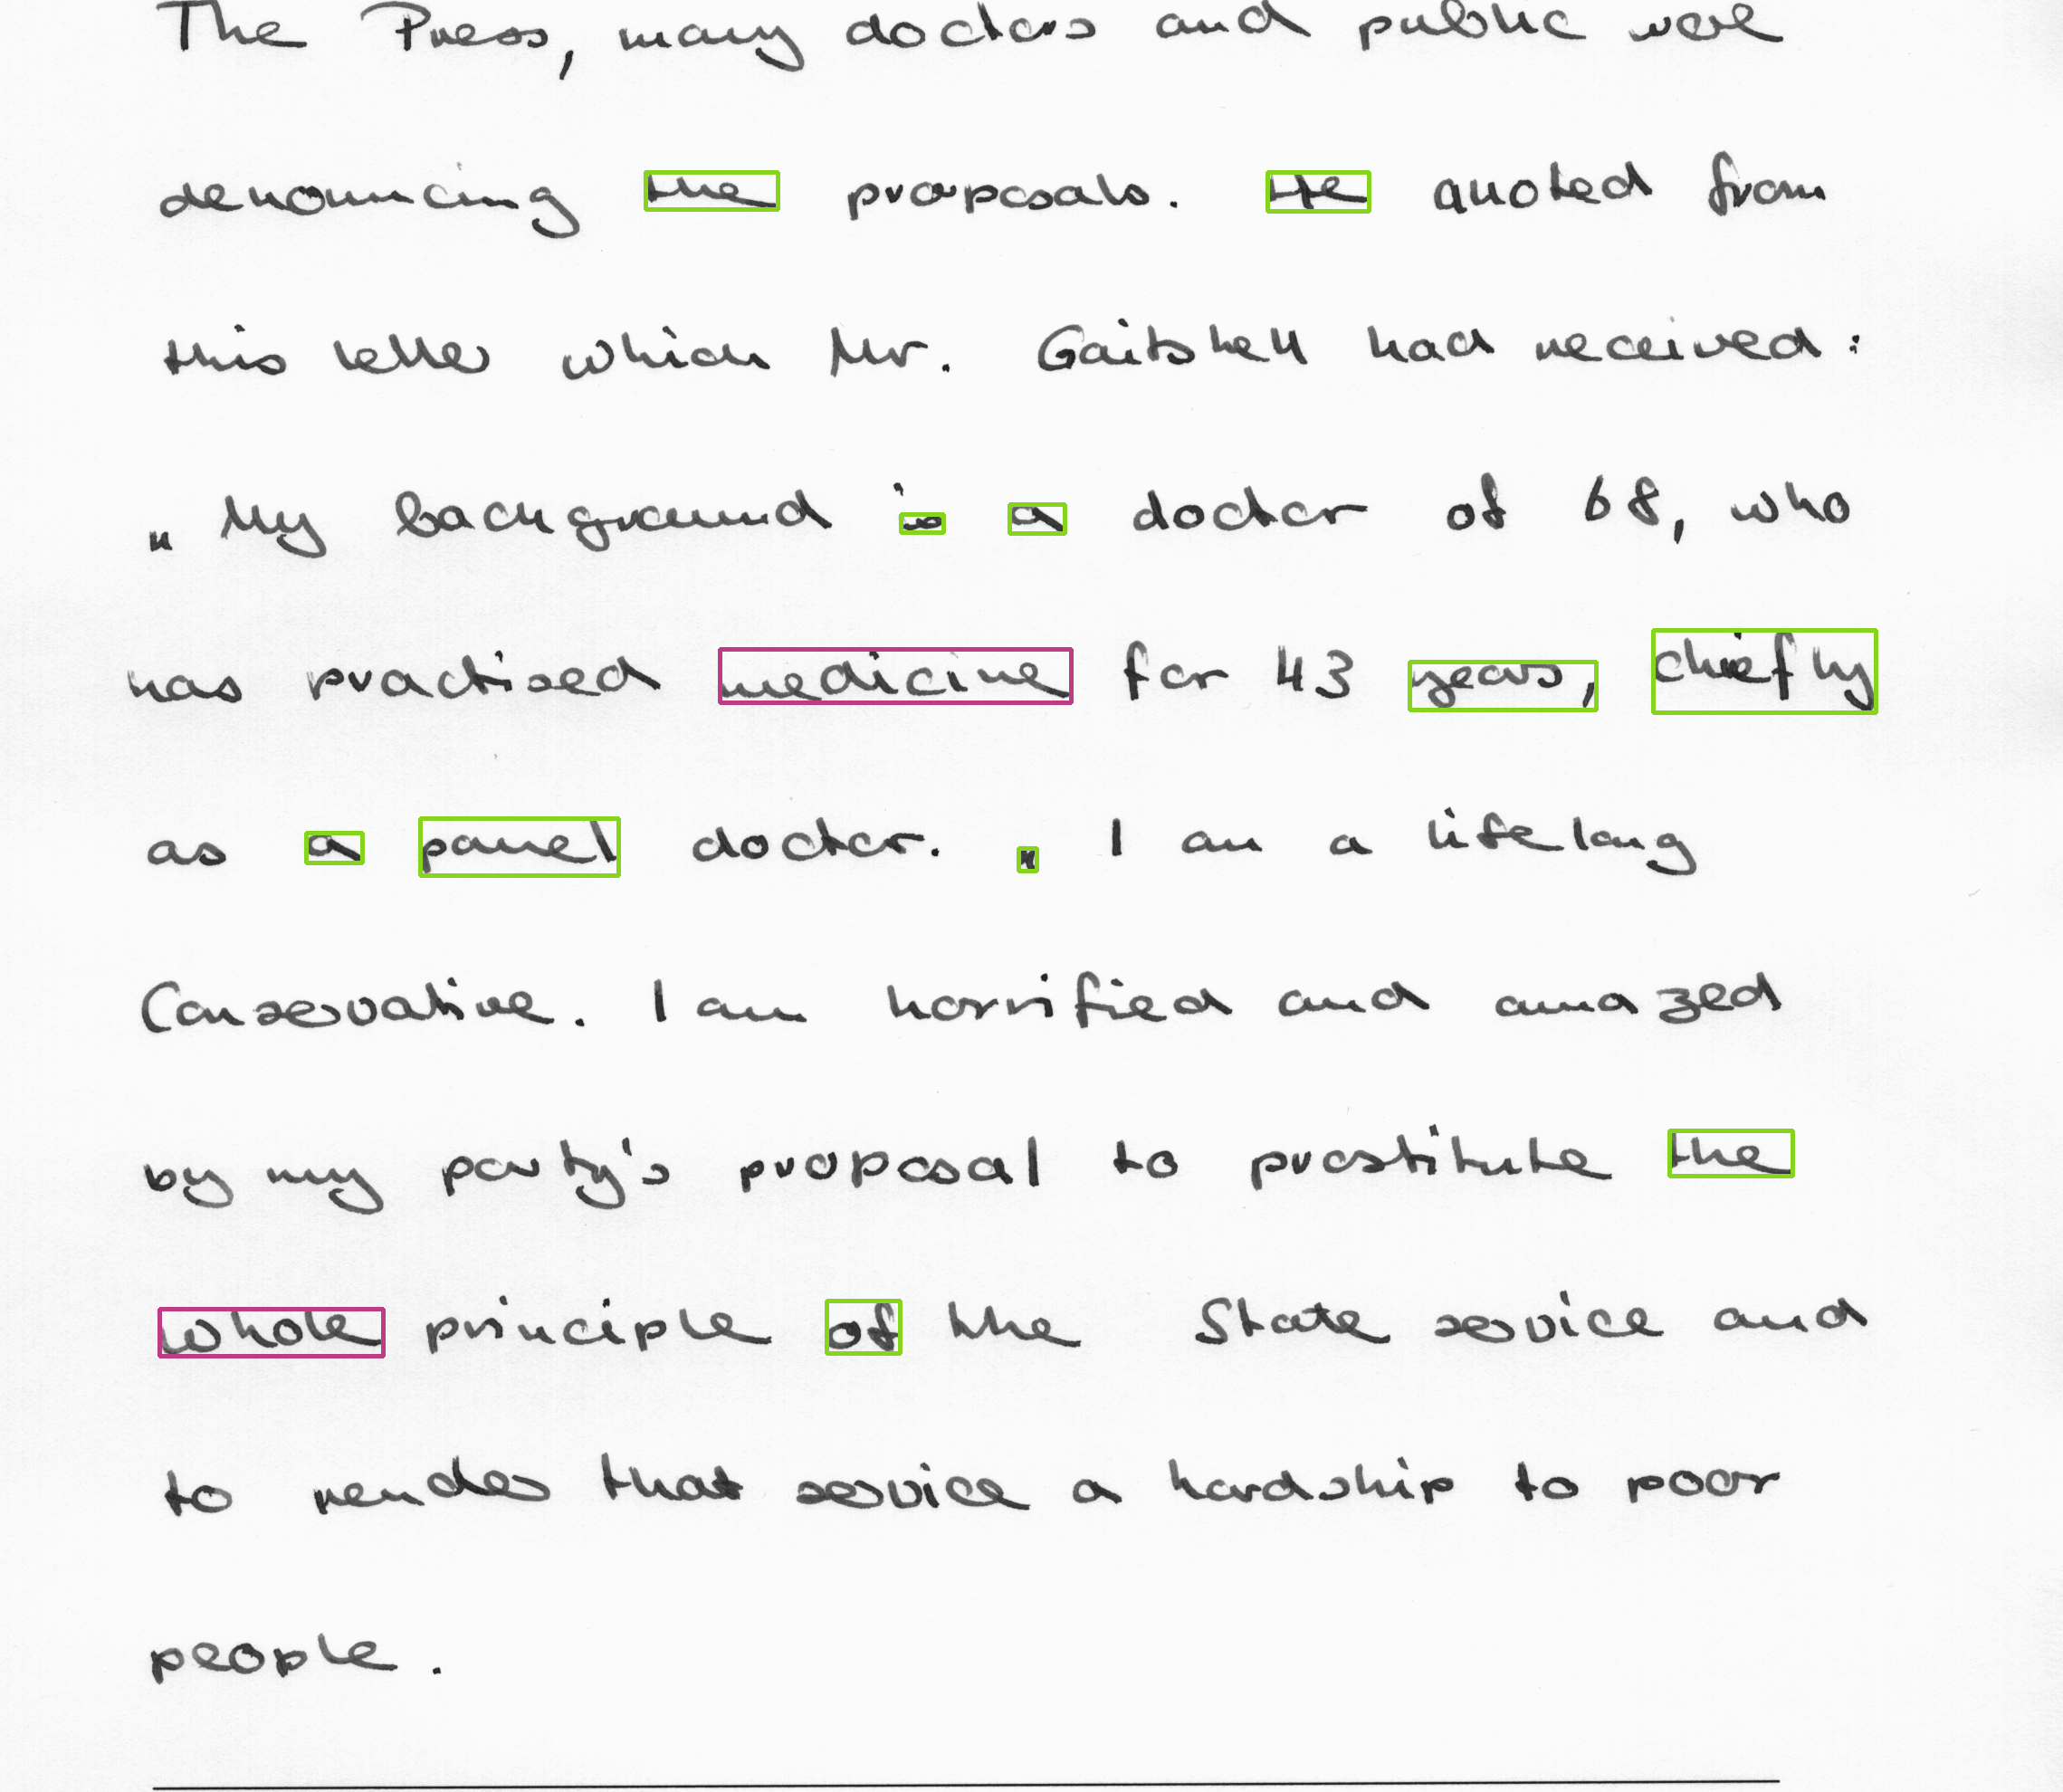 The Press, many doctors and public were
denouncing the proposals. He quoted from
this letter which Mr. Gaitskell had received:
„My background is a doctor of 68, who
has practised medicine for 43 years, chiefly
as a panel doctor. „ I am a lifelong
Conservative. I am horrified and amazed
by my party's proposal to prostitute the
whole principle of the State service and
to render that service a hardship to poor
people.